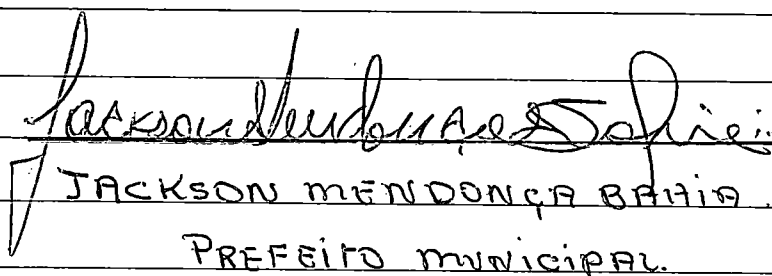 Jackson Mendonça Bahia
JACKSON MENDONÇA BAHIA.
PREFEITO MUNICIPAL.